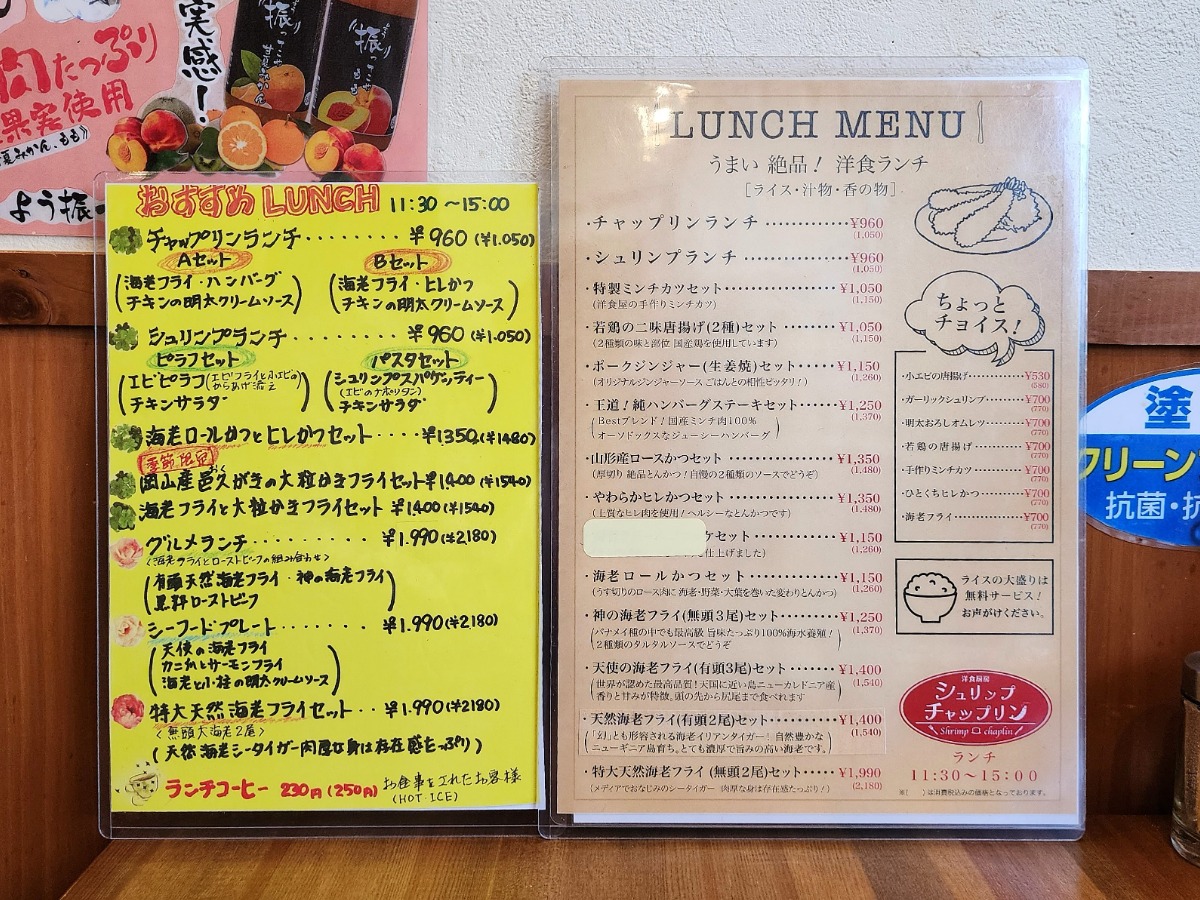 実感!
肉たっぷり
果実使用
夏みかん、もも》
よう振
振
振
おすすめ LUNCH 11:30 ～15:00
チャップリンランチ········¥960 (¥1.050)
Aセット
Bセット
海老フライ・ハンバーグ
チキンの明太クリームソース
海老フライ・ヒレかつ
チキンの明太クリームソース
シュリンプランチ········¥960 (¥1.050)
ピラフセット
パスタセット
エビピラフ(エビフライと小エビのからあげ添え)
チキンサラダ
シュリンプスパゲッティー
(エビのナポリタン)
チキンサラダ
海老ロールかつとヒレかつセット····¥1350(¥1480)
季節限定
岡山産邑久がきの大粒かきフライセット¥1400(¥1540)
おく
海老フライと大粒かきフライセット ¥1400(¥1540)
グルメランチ········¥1.990(¥2.180)
<海老フライとローストビーフの組み合わせ>
有頭天然海老フライ・神の海老フライ
黒毛和ローストビーフ
シーフードプレート·······¥1.990(¥2180)
天使の海老フライ
カニ爪とサーモンフライ
海老と小柱の明太クリームソース
特大天然海老フライセット··¥1.990(¥2180)
<無頭大海老2尾>
(天然海老シータイガー肉厚な身は存在感たっぷり)
ランチコーヒー 230円(250円)
お食事をされたお客様
(HOT・ICE)
LUNCH MENU
うまい 絶品! 洋食ランチ
[ライス・汁物・香の物]
・チャップリンランチ············¥960
(1,050)
・シュリンプランチ············¥960
(1,050)
・特製ミンチカツセット············¥1,050
(洋食屋の手作りミンチカツ)
(1,150)
・若鶏の二味唐揚げ(2種)セット········¥1,050
(2種類の味と部位 国産鶏を使用しています)
(1,150)
・ポークジンジャー(生姜焼)セット······¥1,150
(オリジナルジンジャーソース ごはんとの相性ピッタリ!)
(1,260)
・王道!純ハンバーグステーキセット·····¥1,250
Bestブレンド!国産ミンチ肉100%
(1,370)
オーソドックスなジューシーハンバーグ
・山形産ロースかつセット··········¥1,350
(厚切り 絶品とんかつ!自慢の2種類のソースでどうぞ)
(1,480)
・やわらかヒレかつセット··········¥1,350
(上質なヒレ肉を使用!ヘルシーなとんかつです)
(1,480)
ケセット··········¥1,150
仕上げました)
(1,260)
・海老ロールかつセット···········¥1,150
(うす切りのロース肉に 海老・野菜・大葉を巻いた変わりとんかつ)
(1,260)
・神の海老フライ(無頭3尾)セット······¥1,250
バナメイ種の中でも最高級 旨味たっぷり100%海水養殖!
(1,370)
2種類のタルタルソースでどうぞ
・天使の海老フライ(有頭3尾)セット·····¥1,400
世界が認めた最高品質!天国に近い島ニューカレドニア産
(1,540)
香りと甘みが特徴。頭の先から尻尾まで食べれます
・天然海老フライ(有頭2尾)セット······¥1,400
「幻」とも形容される海老イリアンタイガー!自然豊かな
(1,540)
ニューギニア島育ち。とても濃厚で旨みの高い海老です。
・特大天然海老フライ(無頭2尾)セット····¥1,990
(メディアでおなじみのシータイガー 肉厚な身は存在感たっぷり!)
(2,180)
ちょっと
チョイス!
・小エビの唐揚げ········¥530
(580)
・ガーリックシュリンプ·····¥700
(770)
・明太おろしオムレツ······¥700
(770)
・若鶏の唐揚げ·········¥700
(770)
・手作りミンチカツ·······¥700
(770)
・ひとくちヒレかつ·······¥700
(770)
・海老フライ··········¥700
(770)
ライスの大盛りは
無料サービス!
お声がけください。
洋食厨房
シュリップ
チャップリン
Shrimp chaplin
ランチ
11:30～15:00
※( )は消費税込みの価格となっております。
塗
クリーン
抗菌・抗